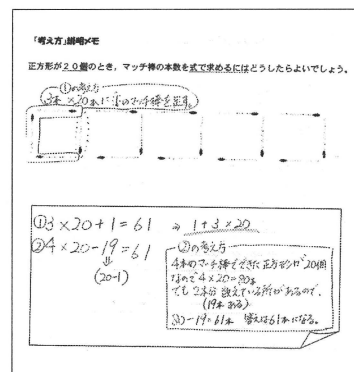 「考え方」説明メモ
正方形が20個のとき，マッチ棒の本数を式で求めるにはどうしたらよいでしょう。
①の考え方
3本×20本に
のマッチ棒を足す。
①3×20+1=61 ⇒ 1+3×20
②4×20-19=61
⇓
(20-1)
②の考え方
4本のマッチ棒でできた正方形が20個
なので4×20=80本
でも2本分数えている所があるので、
(19本ある)
80-19=61本 答えは61本になる。